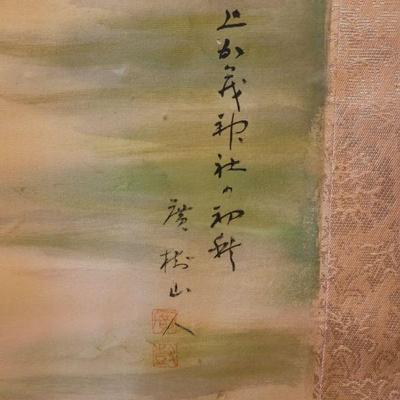 上加茂神社の初秋
廣樹山人